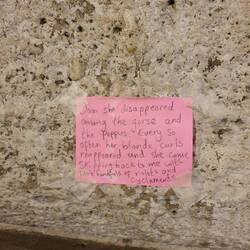 Soon she disappeared
among the gorse and
the poppys. Every so
often her blonde curls
reappeared and she came
skipping back to me with
handfuls of violets and
cyclamens